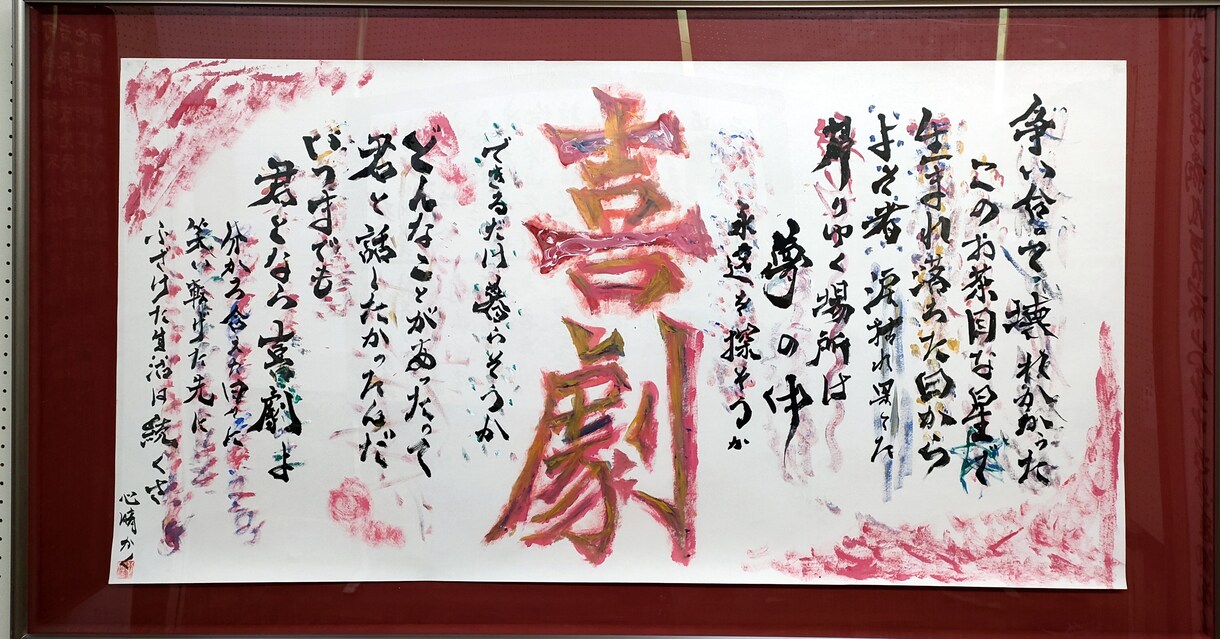 争い合って壊れかかった
このお茶目な星で
生まれ落ちた日から
よそ者 涙枯れ果てた
帰りゆく場所は
夢の中
永遠を探そうか
喜劇
できるだけ暮らそうか
どんなことがあったって
君と話したかったんだ
いつまでも
君となら喜劇よ
分かち合えた日々に
笑い転げた先に
ふざけた生活は続くさ
心晴かく